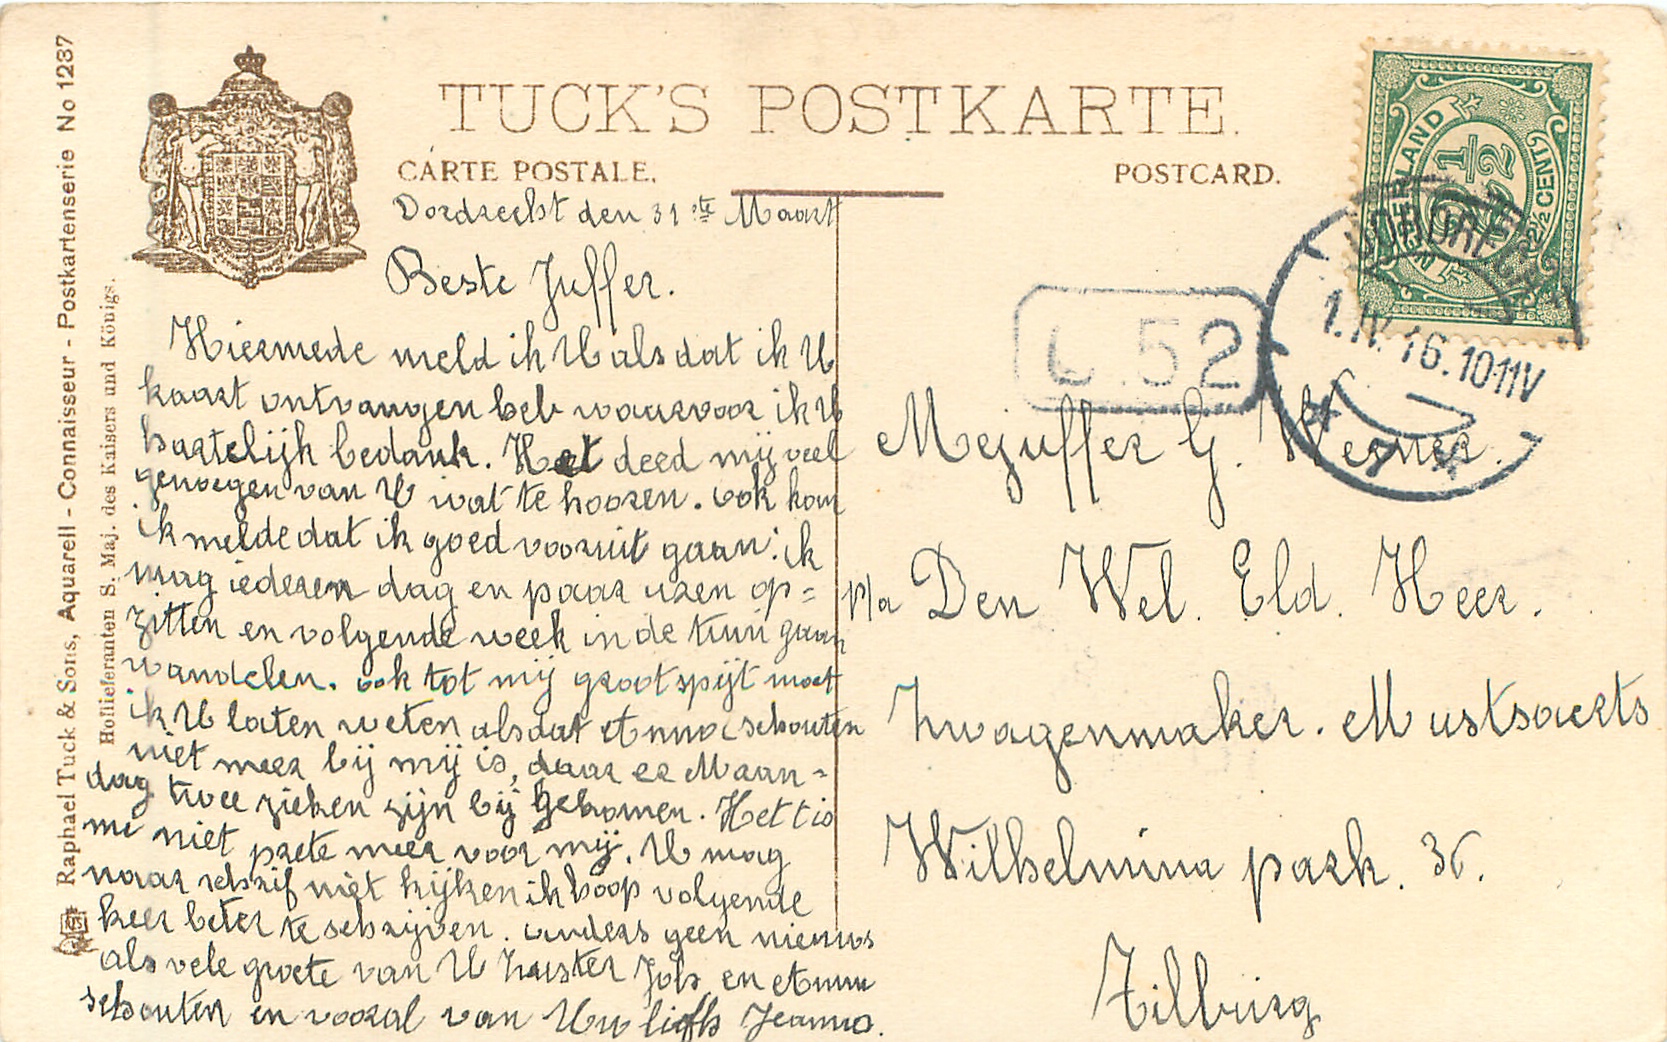 TUCK'S POSTKARTE.
CARTE POSTALE.
POSTCARD.
Raphael Tuck & Sons, Aquarell - Connaisseur - Postkartenserie No 1237
Hoflieferanten S. Maj. des Kaisers und Königs.
NEDERLAND
2½
2½ CENT
DORDRECHT
1.IV.16.10-11V
52
Dordrecht den 31ste Maart
Beste Juffer.
Hiermede meld ik U als dat ik U
kaart ontvangen heb waarvoor ik U
hartelijk bedank. Het deed mij veel
genoegen van U wat te hooren. ook kan
ik melde dat ik goed vooruit gaan: ik
mag iederen dag en paar uren op=
zitten en volgende week in de tuin gaan
wandelen. ook tot mij groot spijt moet
ik U laten weten alsdat Anna schouten
niet meer bij mij is, daar er Maan=
dag twee zieken zijn bij gekomen. Het t is
me niet prete meer voor mij. U mag
naar schrif niet kijken ik hoop volgende
keer beter te schrijven. anders geen nieuws
als vele groete van U zuster Joh en Anna
schouten en vooral van Uw liefh Jeanna.
Mejuffer G. Werner.
p/a Den Wel. Eld. Heer.
Zwagenmaker. Mustsaerts
Wilhelmina park. 36.
Tilburg